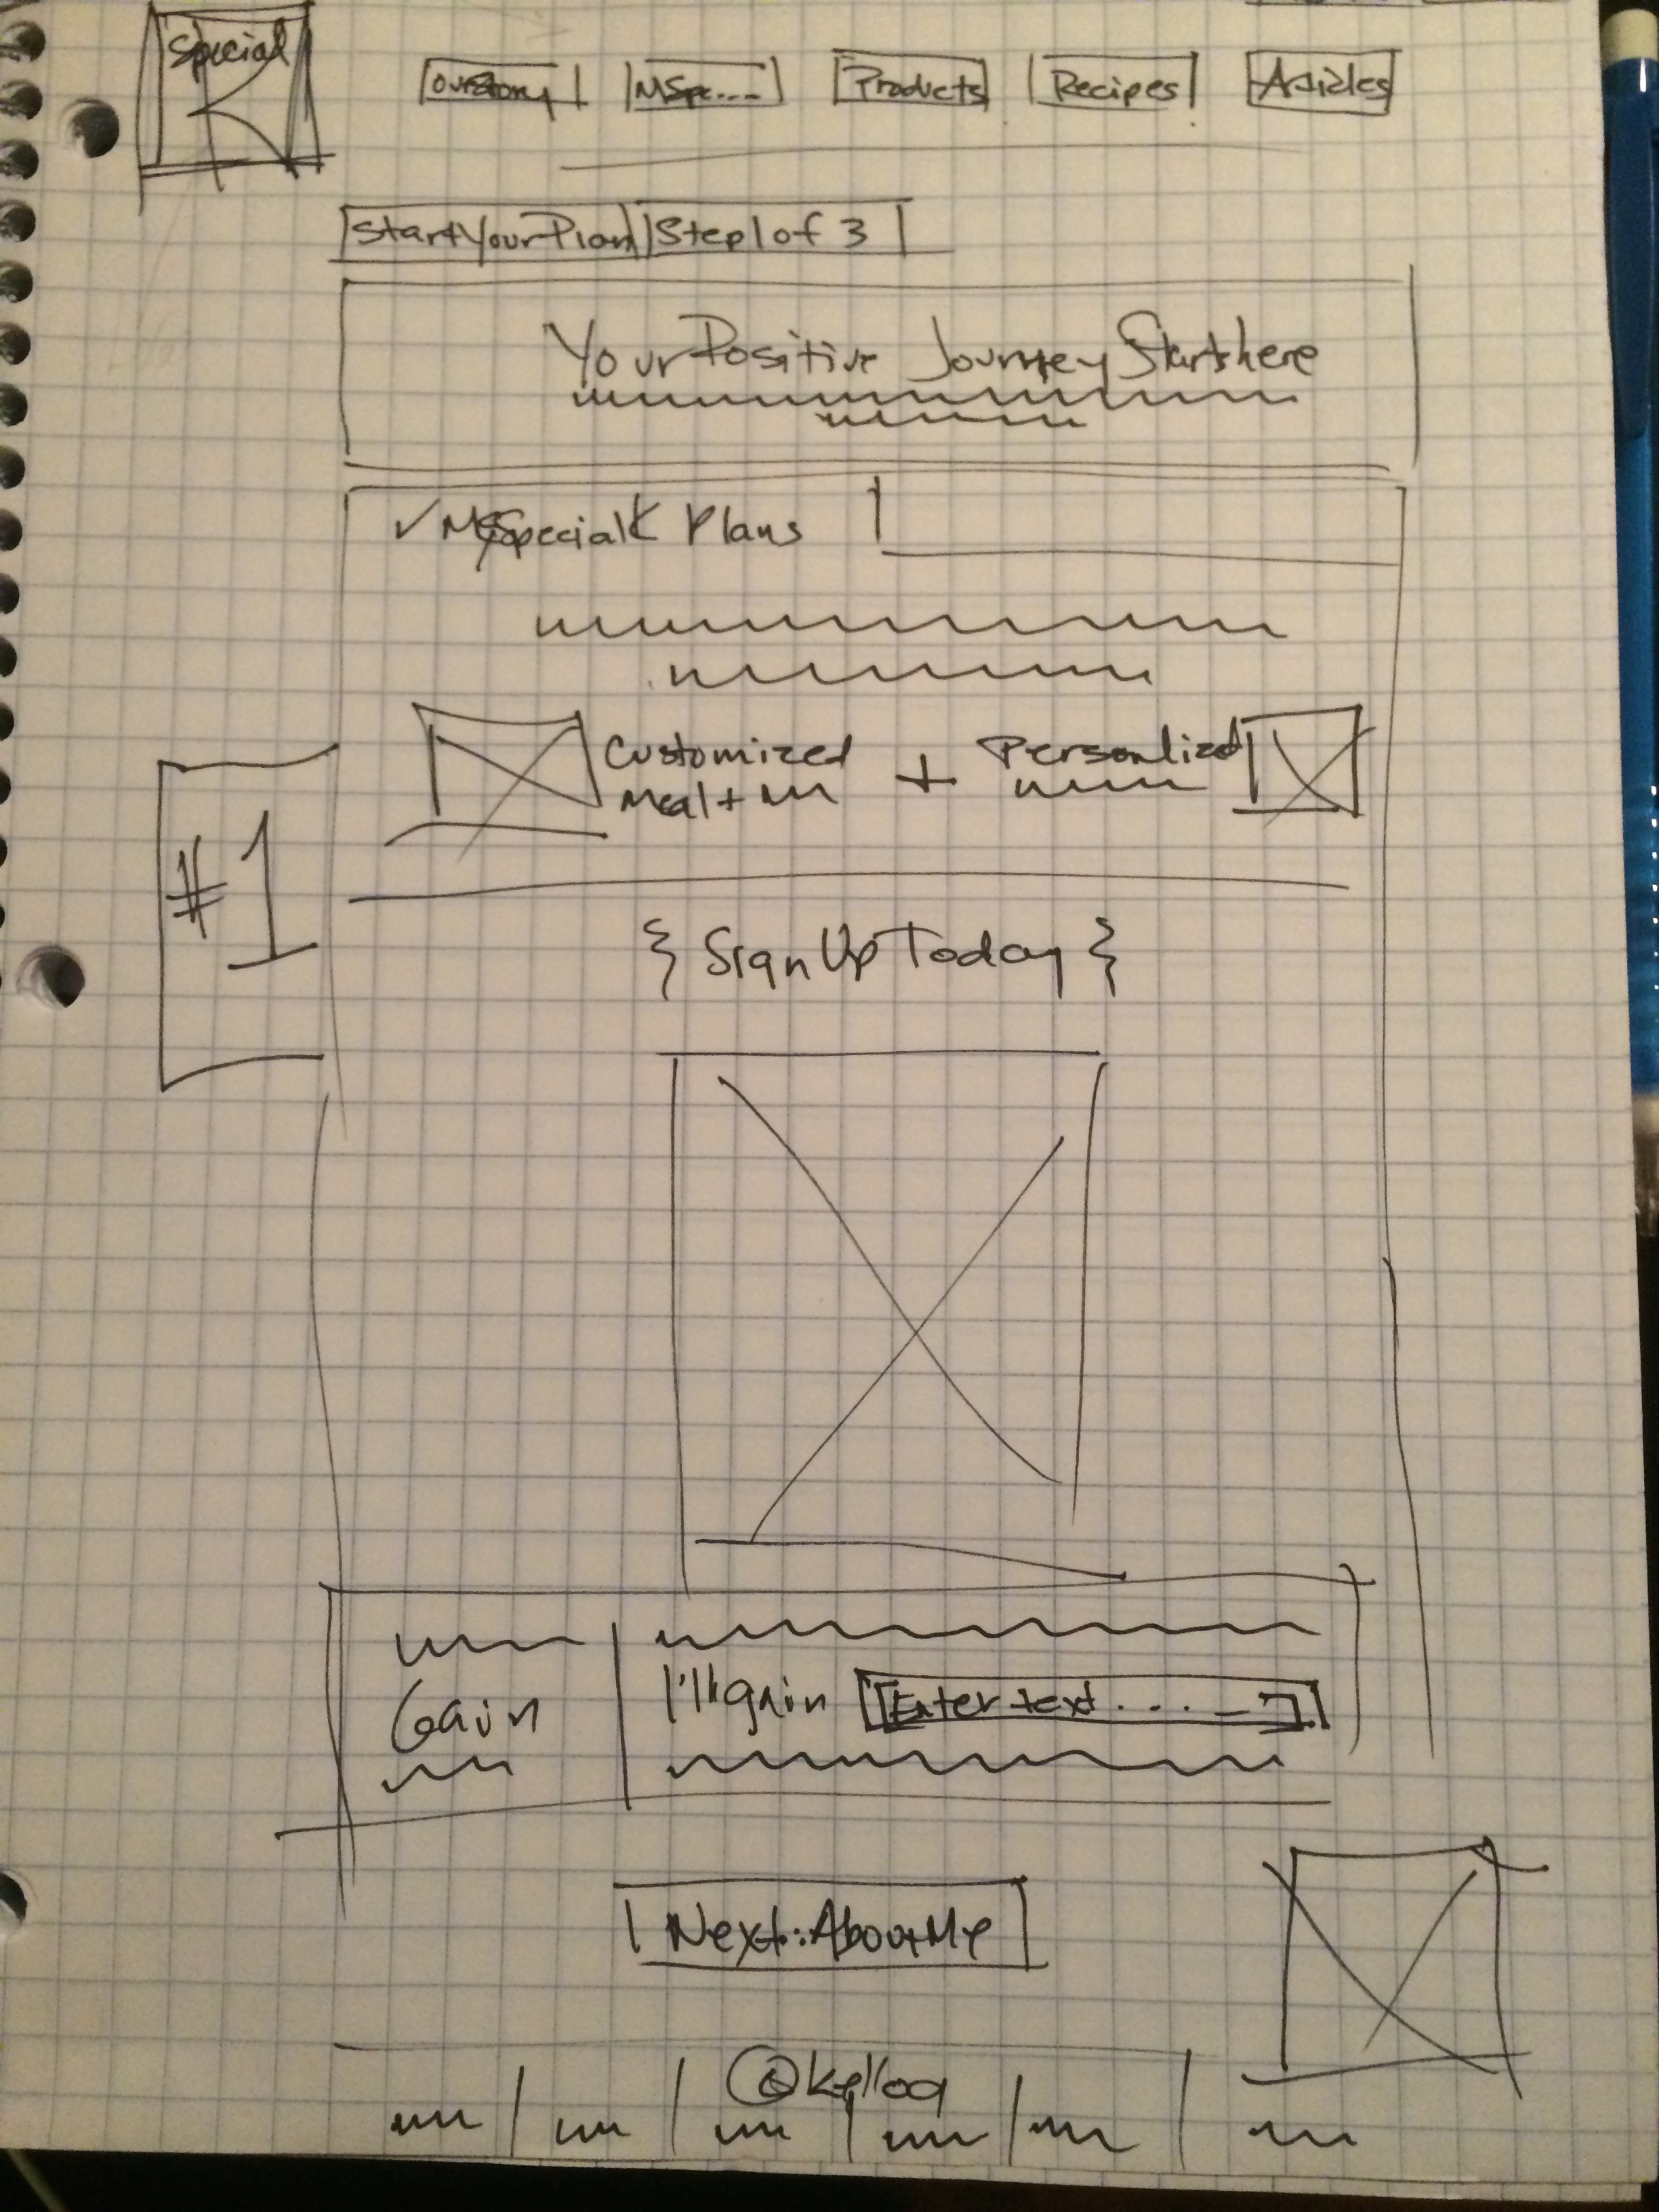 Special
K
Our Story
MSpe....
Products
Recipes
Articles
Start Your Plan
Step 1 of 3
Your Positive Journey Starts here
✓ MySpecialK Plans
Customized
Meal +
+
Personlized
#1
{ Sign Up Today }
Gain
I'll gain [Enter text . . . . _]
Next: About Me
@kellog